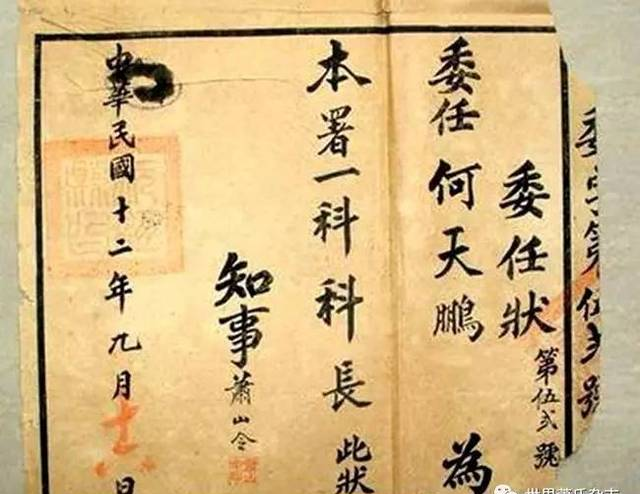 委字第伍弍號
委任狀 第伍弍號
委任何天鵬 為
本署一科科長 此狀
知事 蕭山令
中華民國十二年九月十六日
世界蕭氏杂志